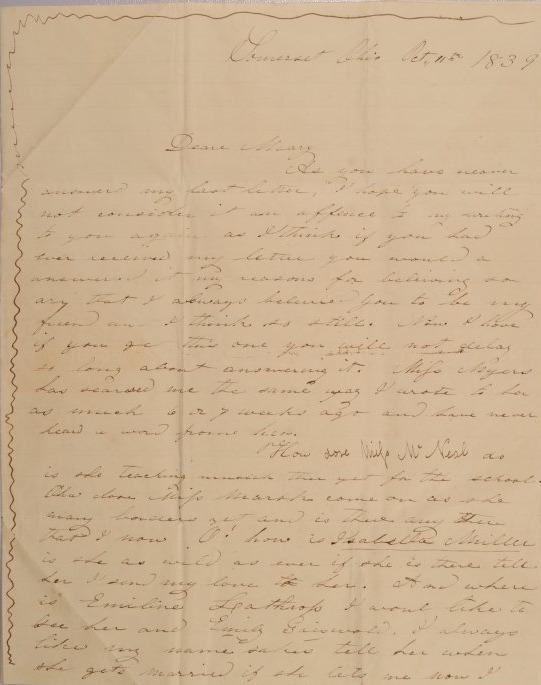 Somerset Ohio Oct, 11th 1839
Dear Mary
As you have never
answerd my last letter, I hope you will
not consider it an affince to my writing
to you again as I think if you had
ever received my letter you would a
answered it my reasons for beliving so
ary that I always believed you to be my
friend an I think so still. Now I hope
if you ge this one you will not delay
so long about answering it Miss Myers
has searved me the same way I wrote to her
as much 6 or 7 weeks ago and have never
heard a word frome her.
How dose Miss McNeal do
is she teaching musick ther yet for the school.
dose Miss Marsh come on as she
many borders yet and is there any
that I now O! how is Isabella Miller
is she as wild as ever if she is there tell
her I send my love to her. And where
is Emiline Lathrop I woul like to
see her and Emily Griswold. I always
like my name sakes tell her when
she gets married if she lets me now I